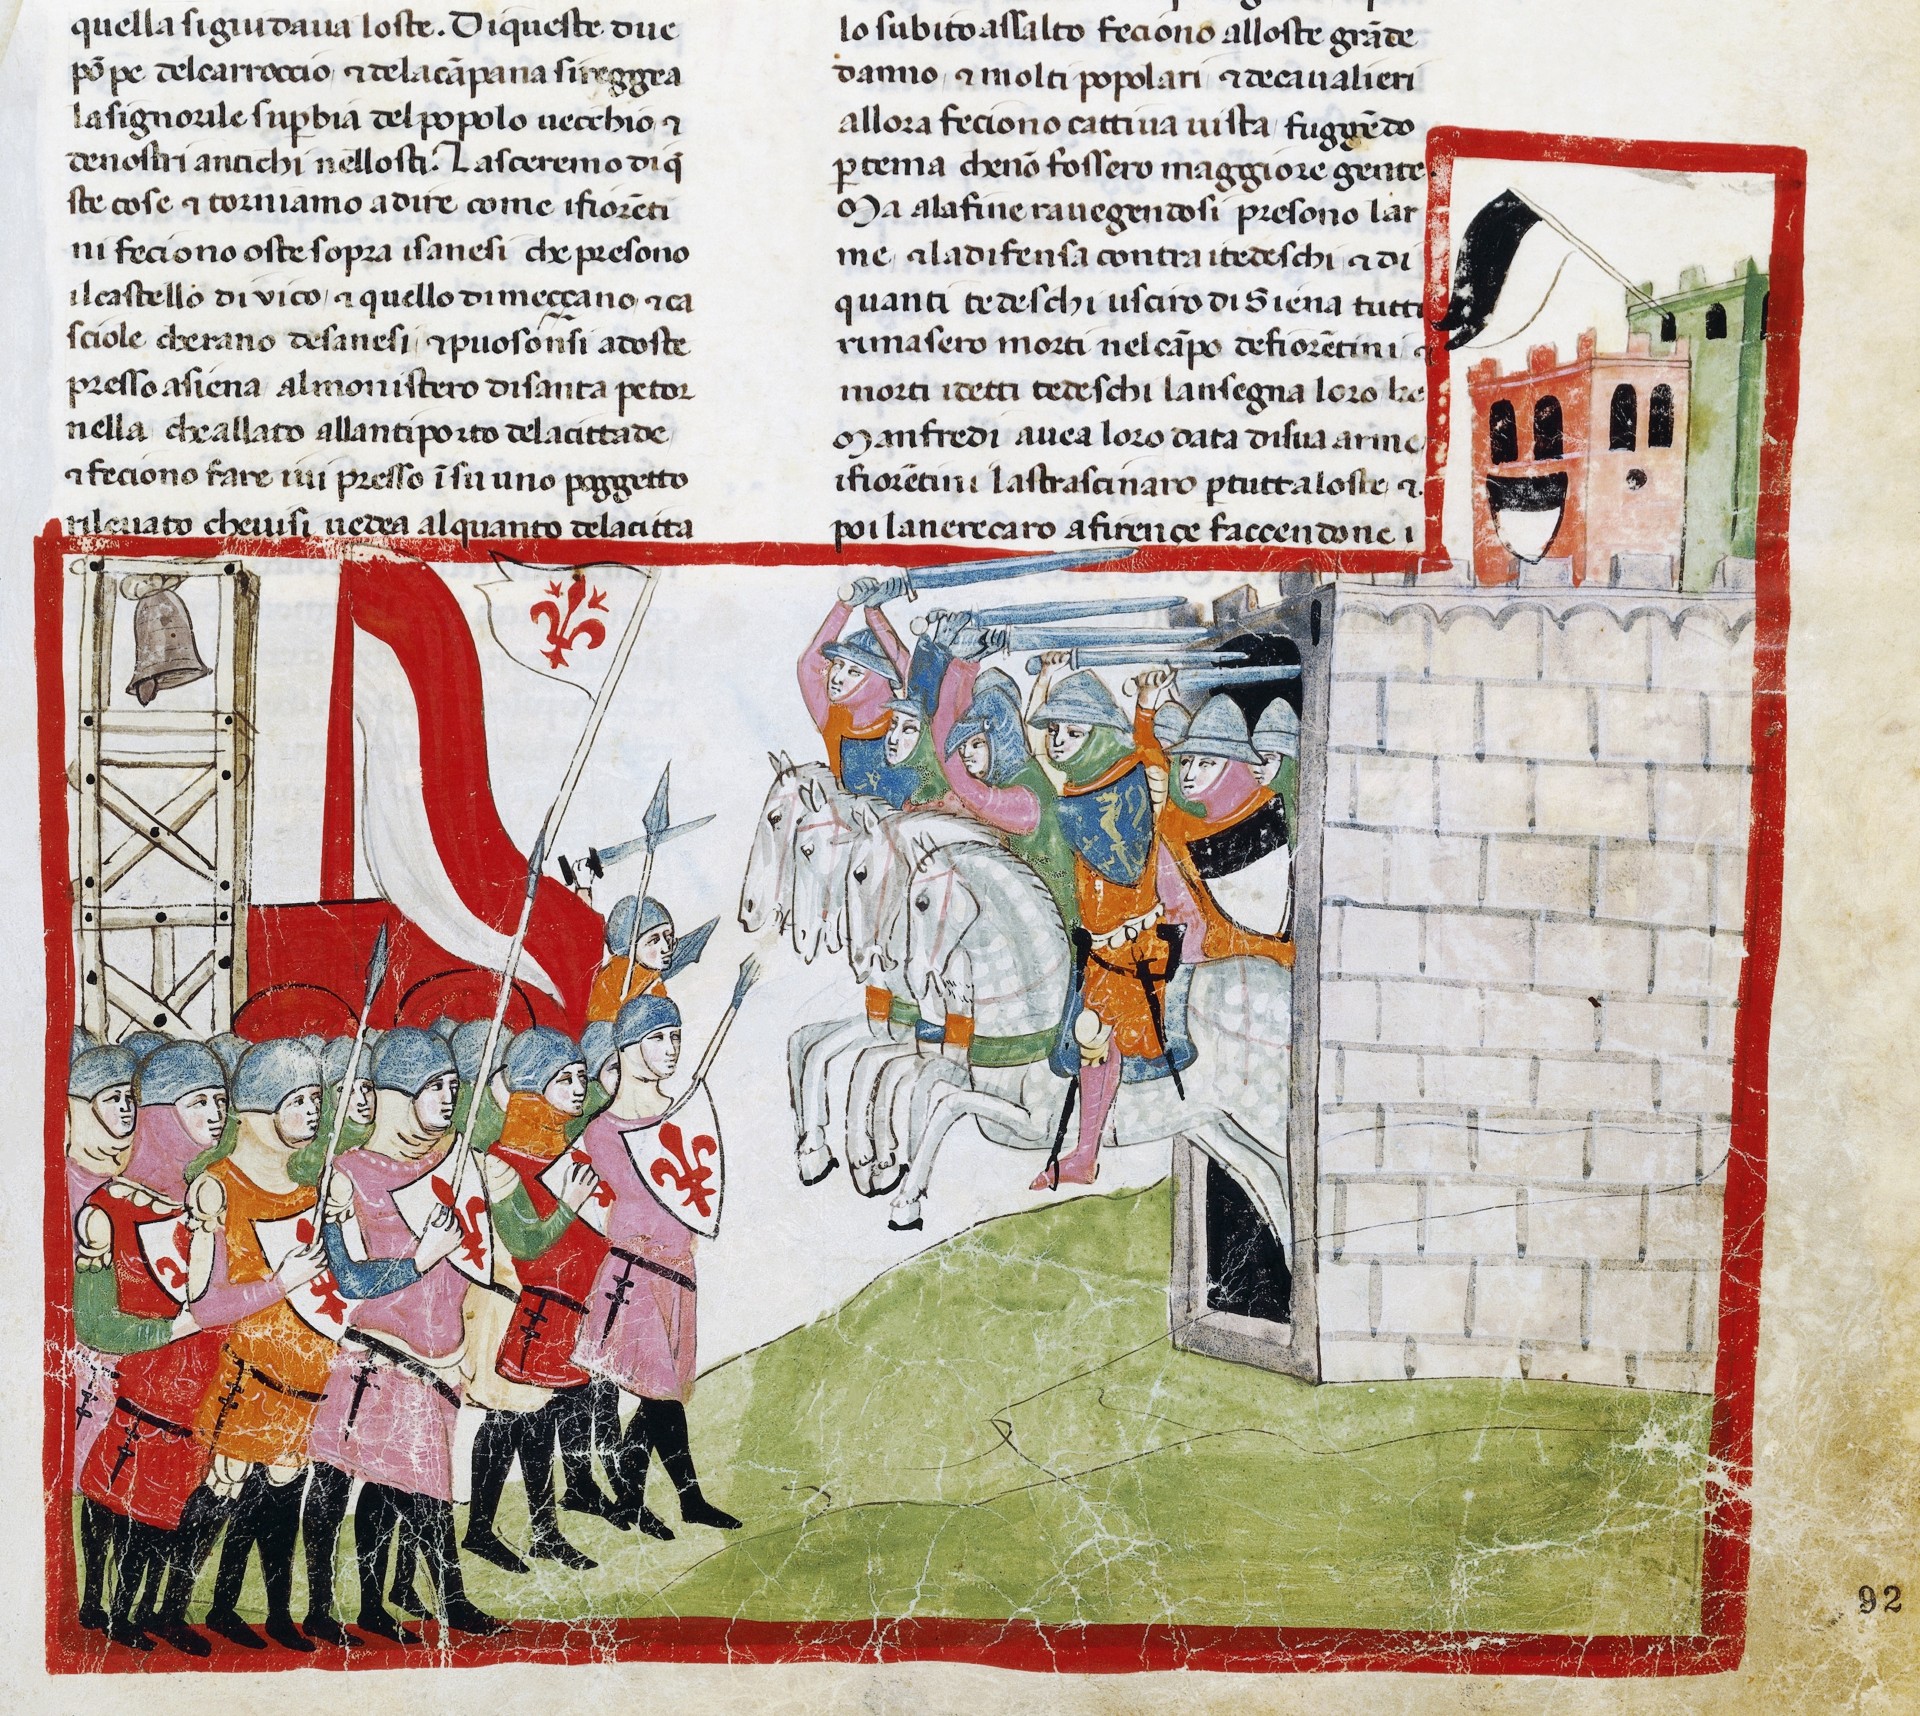 quella si guidaua loste. Di queste due
pōpe del carroccio, ⁊ dela cāpana si reggea
la signorile supbia del popolo uecchio, ⁊
de nostri antichi nellosti. Lasceremo di q̄
ste cose ⁊ torniamo a dire come i fiorēti
ni feciono oste sopra i sanesi che presono
il castello di vico, ⁊ quello di meççano, ⁊ ca
sciole cherano de sanesi, ⁊ puosonsi ad oste
presso a siena al monistero di santa petor
nella che allato allantiporto dela cittade,
⁊ feciono fare iui presso ī su uno poggetto
rileuato che uisi uedea alquanto dela citta
lo subito assalto feciono alloste grāde
danno, ⁊ molti popolari, ⁊ de caualieri
allora feciono cattiua uista, fuggēdo
p tema che nō fossero maggiore gente.
Ma ala fine rauegendosi presono lar
me, ⁊ la difensa contra i tedeschi, ⁊ di
quanti tedeschi usciro di Siena tutti
rimasero morti nel cāpo de fiorētini, ⁊
morti i detti tedeschi lansegna loro kɇ
Manfredi auea loro data di sua arme,
i fiorētini la strascinaro p tutta loste, ⁊.
poi la nerecaro a firençe faccendone i
92